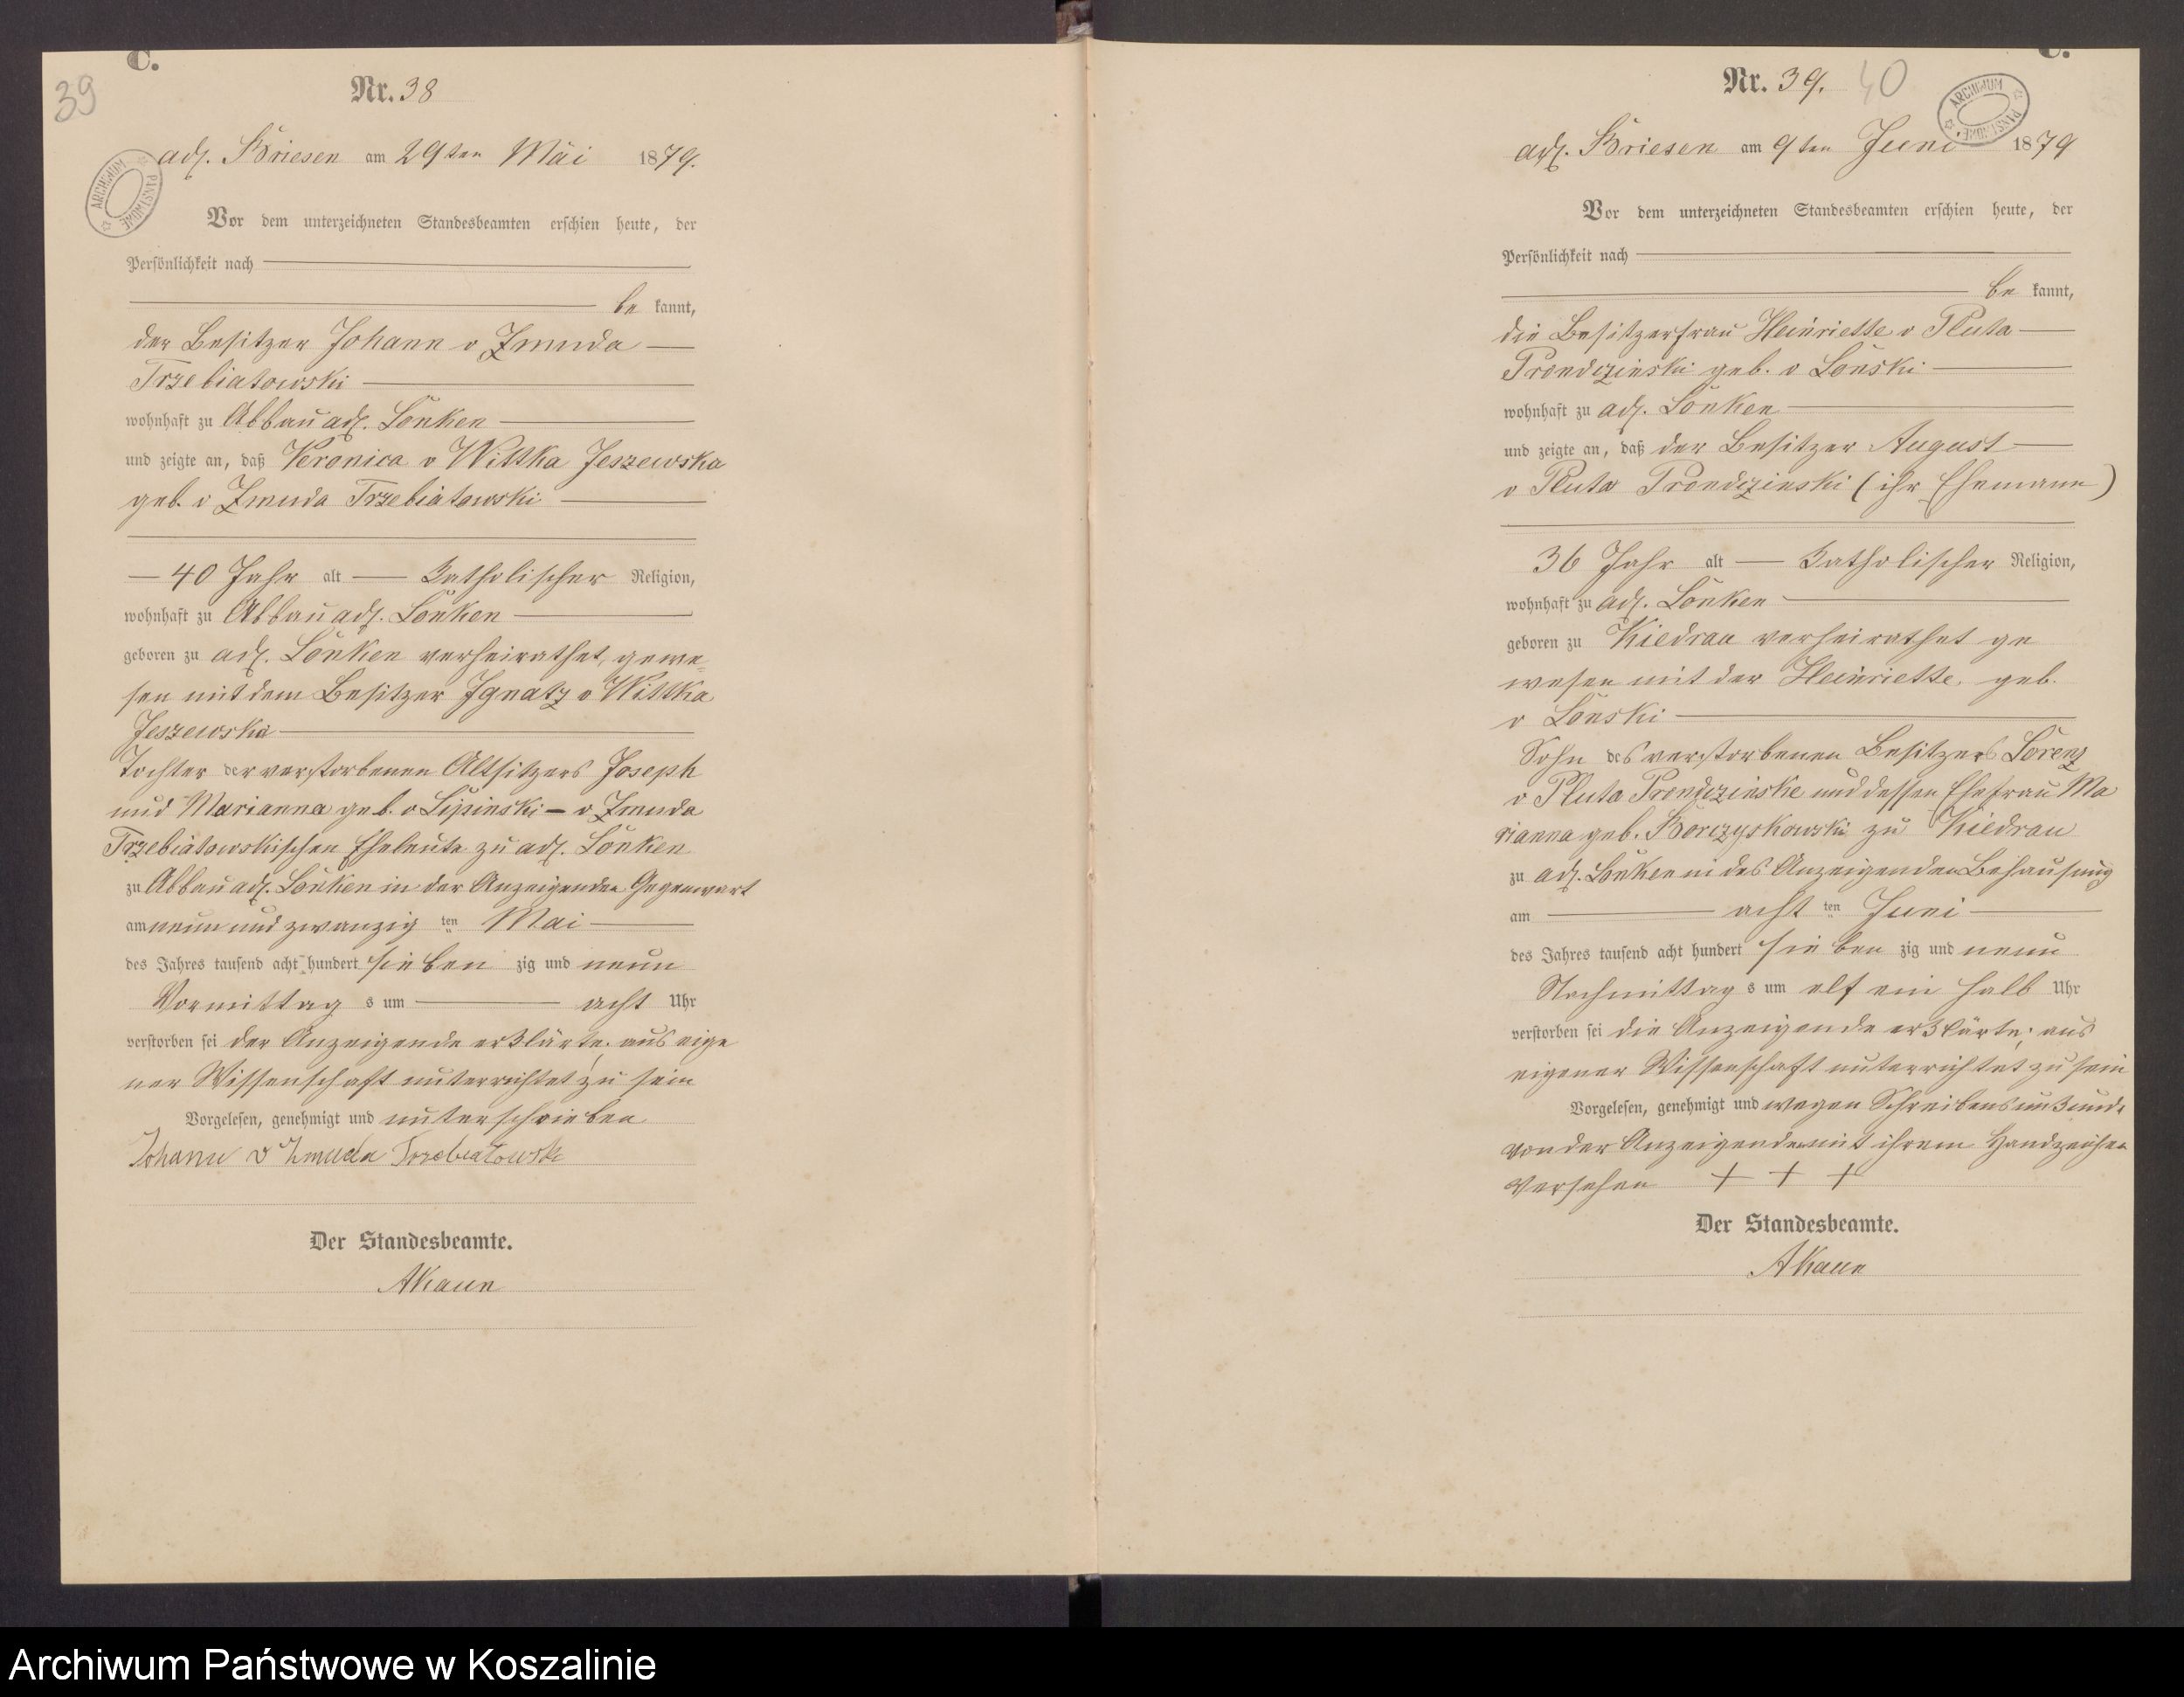 C.
39
Nr. 38
adl. Briesen am 29ten Mai 1879.
ARCHIWUM PAŃSTWOWE
Vor dem unterzeichneten Standesbeamten erschien heute, der
Persönlichkeit nach
be kannt,
der Besitzer Johann v Zmuda
Trzebiatowski
wohnhaft zu Abbau adl. Lonken
und zeigte an, daß Veronica v Wittka Jeszewska
geb. v Zmuda Trzebiatowski
40 Jahr alt Katholischer Religion,
wohnhaft zu Abbau adl. Lonken
geboren zu adl. Lonken verheirathet gewe=
sen mit dem Besitzer Ignatz v Wittka
Jeszewski
Tochter der verstorbenen Altsitzers Joseph
und Marianna geb. v Lipinski - v Zmuda
Trzebiatowskischen Eheleute zu adl. Lonken
zu Abbau adl. Lonken in der Anzeigenden Gegenwart
am neun und zwanzig ten Mai
des Jahres tausend acht hundert sieben zig und neun
Vormittag s um acht Uhr
verstorben sei der Anzeigende erklärte, aus eige
ner Wissenschaft unterrichtet zu sein
Vorgelesen, genehmigt und unterschrieben
Johann v Zmuda Trzebiatowski
Der Standesbeamte.
AKaun
C.
Nr. 39. 40
ARCHIWUM PAŃSTWOWE
adl. Briesen am 9ten Juni 1879
Vor dem unterzeichneten Standesbeamten erschien heute, der
Persönlichkeit nach
be kannt,
die Besitzerfrau Heinriette v Pluta
Prondzinski geb. v Lonski
wohnhaft zu adl. Lonken
und zeigte an, daß der Besitzer August
v Pluta Prondzinski (ihr Ehemann)
36 Jahr alt Katholischer Religion,
wohnhaft zu adl. Lonken
geboren zu Kiedrau verheirathet ge
wesen mit der Heinriette geb.
v Lonski
Sohn des verstorbenen Besitzers Lorenz
v Pluta Prondzinski und dessen Ehefrau Ma
rianna geb. Borczyskowski zu Kiedrau
zu adl. Lonken in des Anzeigenden Behausung
am acht ten Juni
des Jahres tausend acht hundert sieben zig und neun
Nachmittag s um elf ein halb Uhr
verstorben sei die Anzeigende erklärte, aus
eigener Wissenschaft unterrichtet zu sein
Vorgelesen, genehmigt und wegen Schreibensunkunde
von der Anzeigenden mit ihrem Handzeichen
versehen + + +
Der Standesbeamte.
AKaun
Archiwum Państwowe w Koszalinie